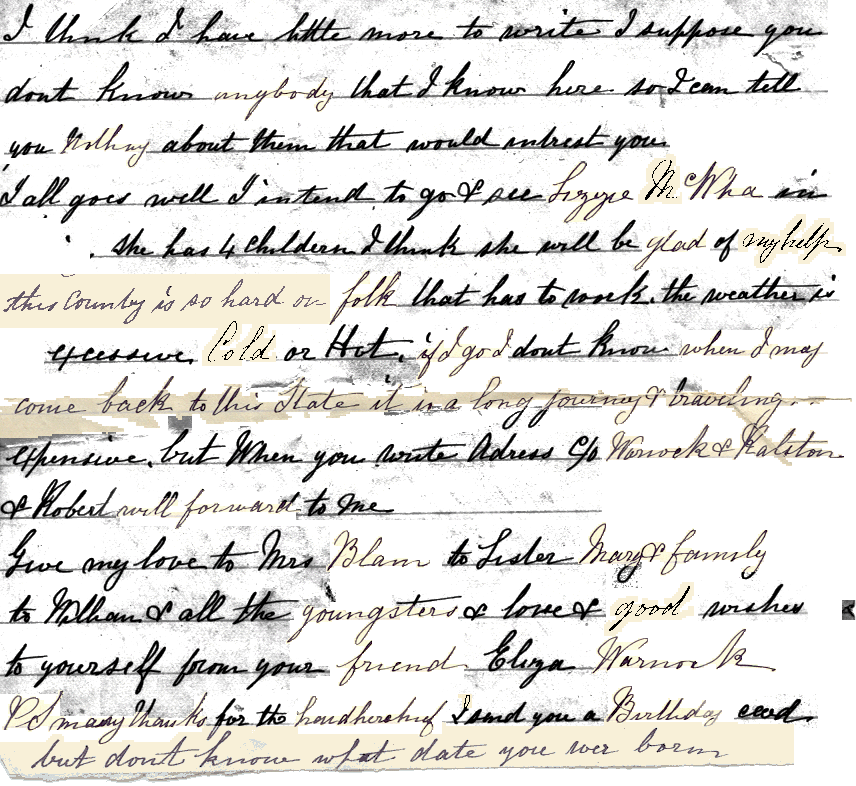 I think I have little more to write I suppose you
dont know anybody that I know here so I can tell
you Nothing about them that would intrest you
I all goes well I intend to go & see Lizzie McWha in
she has 4 childern I think she will be glad of my help
this Country is so hard on folk that has to work. the weather is
excessive. Cold or Hot. if I go I dont know when I may
come back to this State it is a long journey & traveling..
expensive. but When you write Adress c/o Warnock & Ralston
& Robert will forward to me
Give my love to Mrs Blain to Sister Mary & family
to William & all the youngsters & love & good wishes
to yourself from your friend Eliza Warnock
PS many thanks for the handkerchief I send you a Birthday card
but dont know what date you wer born